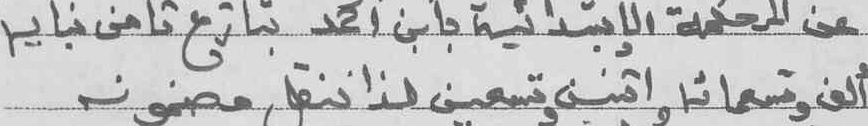 عن المحكمة الإبتدائية بابن احمد بتاريخ ثامن يناير
ألف وتسعمائة واثنين وتسعين لذا ننقل مضمونه